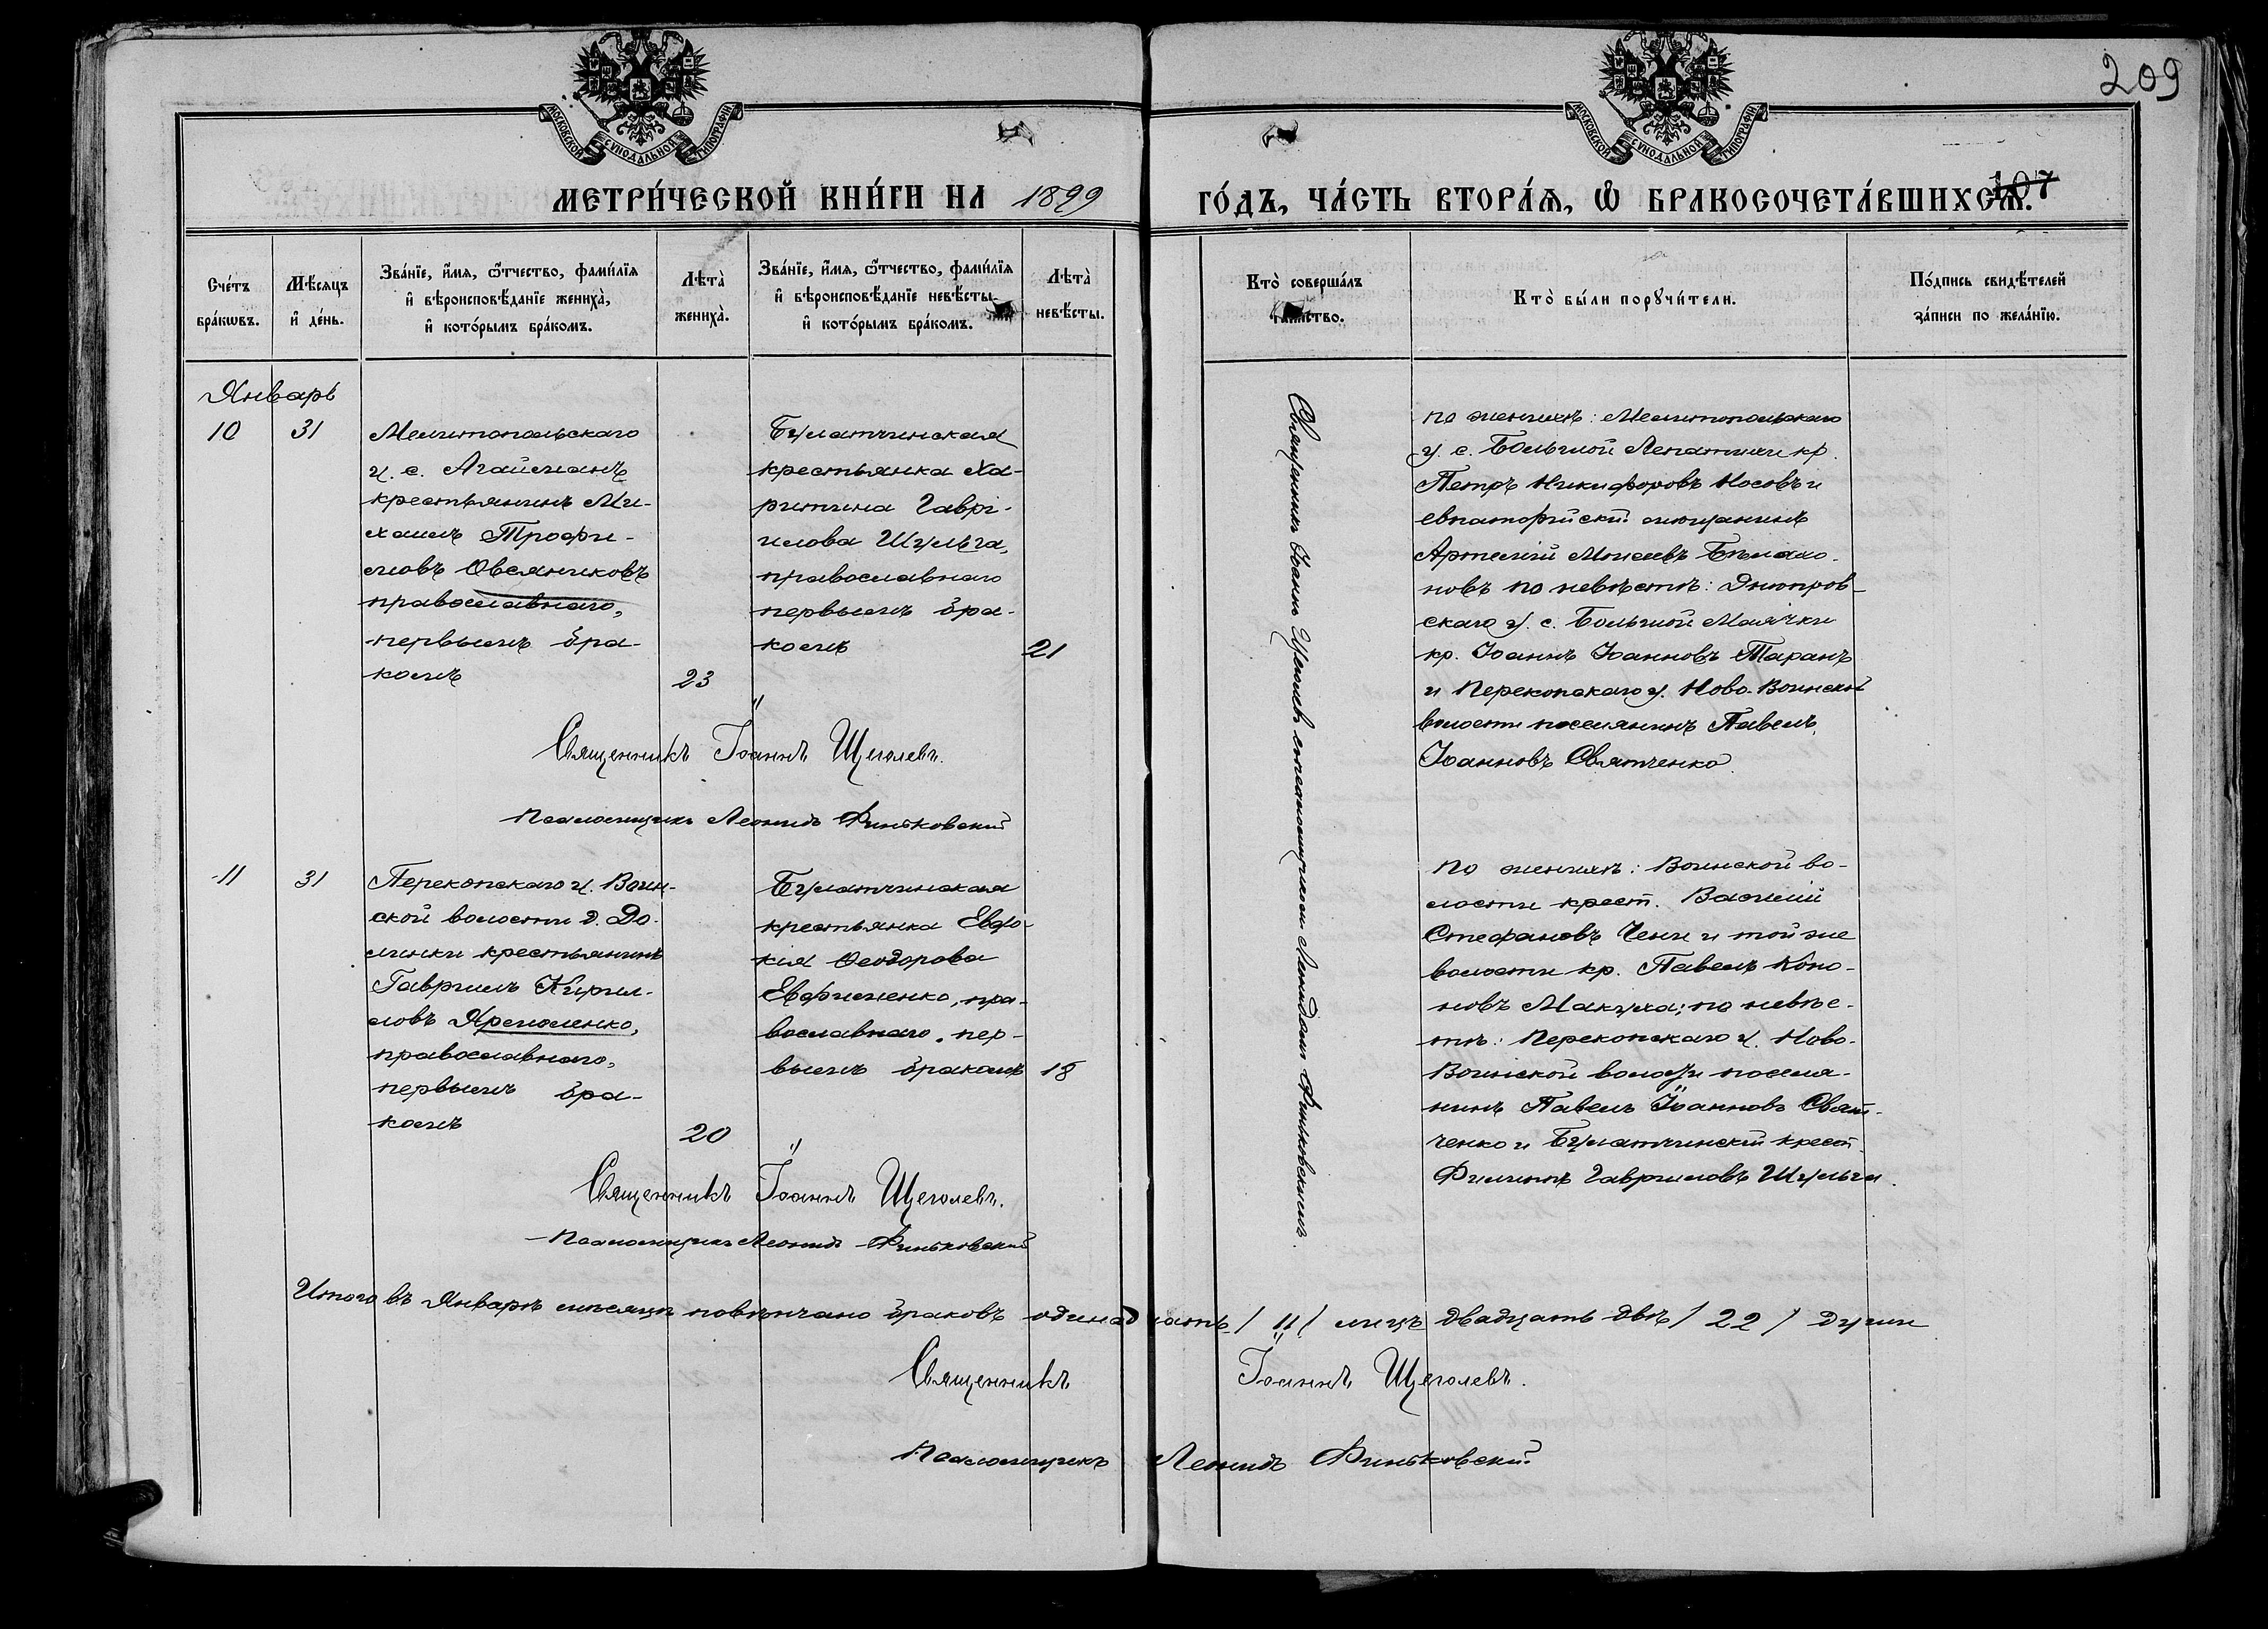 209
МОСКОВСКОЙ СѴНОДАЛЬНОЙ ТИПОГРАФІИ
МОСКОВСКОЙ СѴНОДАЛЬНОЙ ТИПОГРАФІИ
МЕТРИ́ЧЕСКОЙ КНИ́ГИ НА 1899
ГО́ДЪ, ЧА́СТЬ ВТОРА́Ѧ, Ѽ БРАКОСОЧЕТА́ВШИХСѦ.
107
Сче́тъ
бра́кѡвъ.
Мѣ́сяцъ
и҆ де́нь.
Зва́нїе, и҆́мя, ѻ҆́тчество, фами́лїя
и҆ вѣроисповѣ́данїе жениха̀,
и҆ кото́рымъ бра́комъ.
Лѣта̀
жениха̀.
Зва́нїе, и҆́мя, ѻ҆́тчество, фами́лїя
и҆ вѣроисповѣ́данїе невѣ́сты,
и҆ кото́рымъ бра́комъ.
Лѣта̀
невѣ́сты.
Кто̀ соверша́лъ
таинство.
Кто̀ бы́ли порꙋчи́тели.
По́дпись свидѣ́телей
за́писи по жела́нїю.
Январь
10
31
Мелитопольскаго
у. с. Агайманъ
крестьянинъ Ми-
хаилъ Трофи-
мовъ Овсянниковъ
православнаго,
первымъ бра-
комъ
23
Булатчинская
крестьянка Ха-
ритина Гаврі-
илова Шульга,
православнаго
первымъ бра-
комъ
21
Священникъ Іоаннъ Щеголевъ.
Псаломщикъ Леонидъ Финьковскій
Священникъ Іоаннъ Щеголевъ съ псаломщикомъ Леонидомъ Финьковскимъ.
по женихѣ: Мелитопольскаго
у. с. Большой Лепатихи кр.
Петръ Никифоровъ Носовъ и
евпаторійскій мѣщанинъ
Артемій Моисеевъ
новъ по невѣстѣ: Днѣпров-
скаго у. с. Большой Маячки
кр. Іоаннъ Іоанновъ Таранъ
и Перекопскаго у. Ново-Воинской
волости поселянинъ Павелъ
Іоанновъ Святченко.
11
31
Перекопскаго у. Воин-
ской волости д. До-
линки крестьянинъ
Гавріилъ Кирил-
ловъ Ярмоленко,
православнаго,
первымъ бра-
комъ
20
Булатчинская
крестьянка Евдо-
кія Ѳеодорова
Евфименко, пра-
вославнаго, пер-
вымъ бракомъ
18
Священникъ Іоаннъ Щеголевъ.
Псаломщикъ Леонидъ Финьковскій
по женихѣ: Воинской во-
лости крест. Василій
Стефановъ и той же
волости кр. Павелъ Коно-
новъ Макуха; по невѣс-
тѣ: Перекопскаго у. Ново-
Воинской волости поселя-
нинъ Павелъ Іоанновъ Свят-
ченко и Булатчинскій крест.
Филиппъ Гавріиловъ Шульга.
Итого въ Январѣ мѣсяцѣ повѣнчано браковъ одинадцать / 11 / лицъ двадцать двѣ / 22 / души
Священникъ Іоаннъ Щеголевъ.
Псаломщикъ Леонидъ Финьковскій